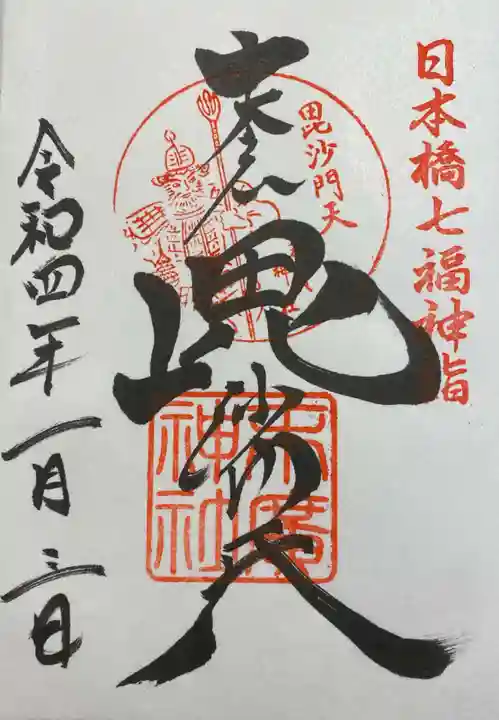 日本橋七福神詣
毘沙門天
奉拝
毘沙門天
末廣神社
令和四年一月三日